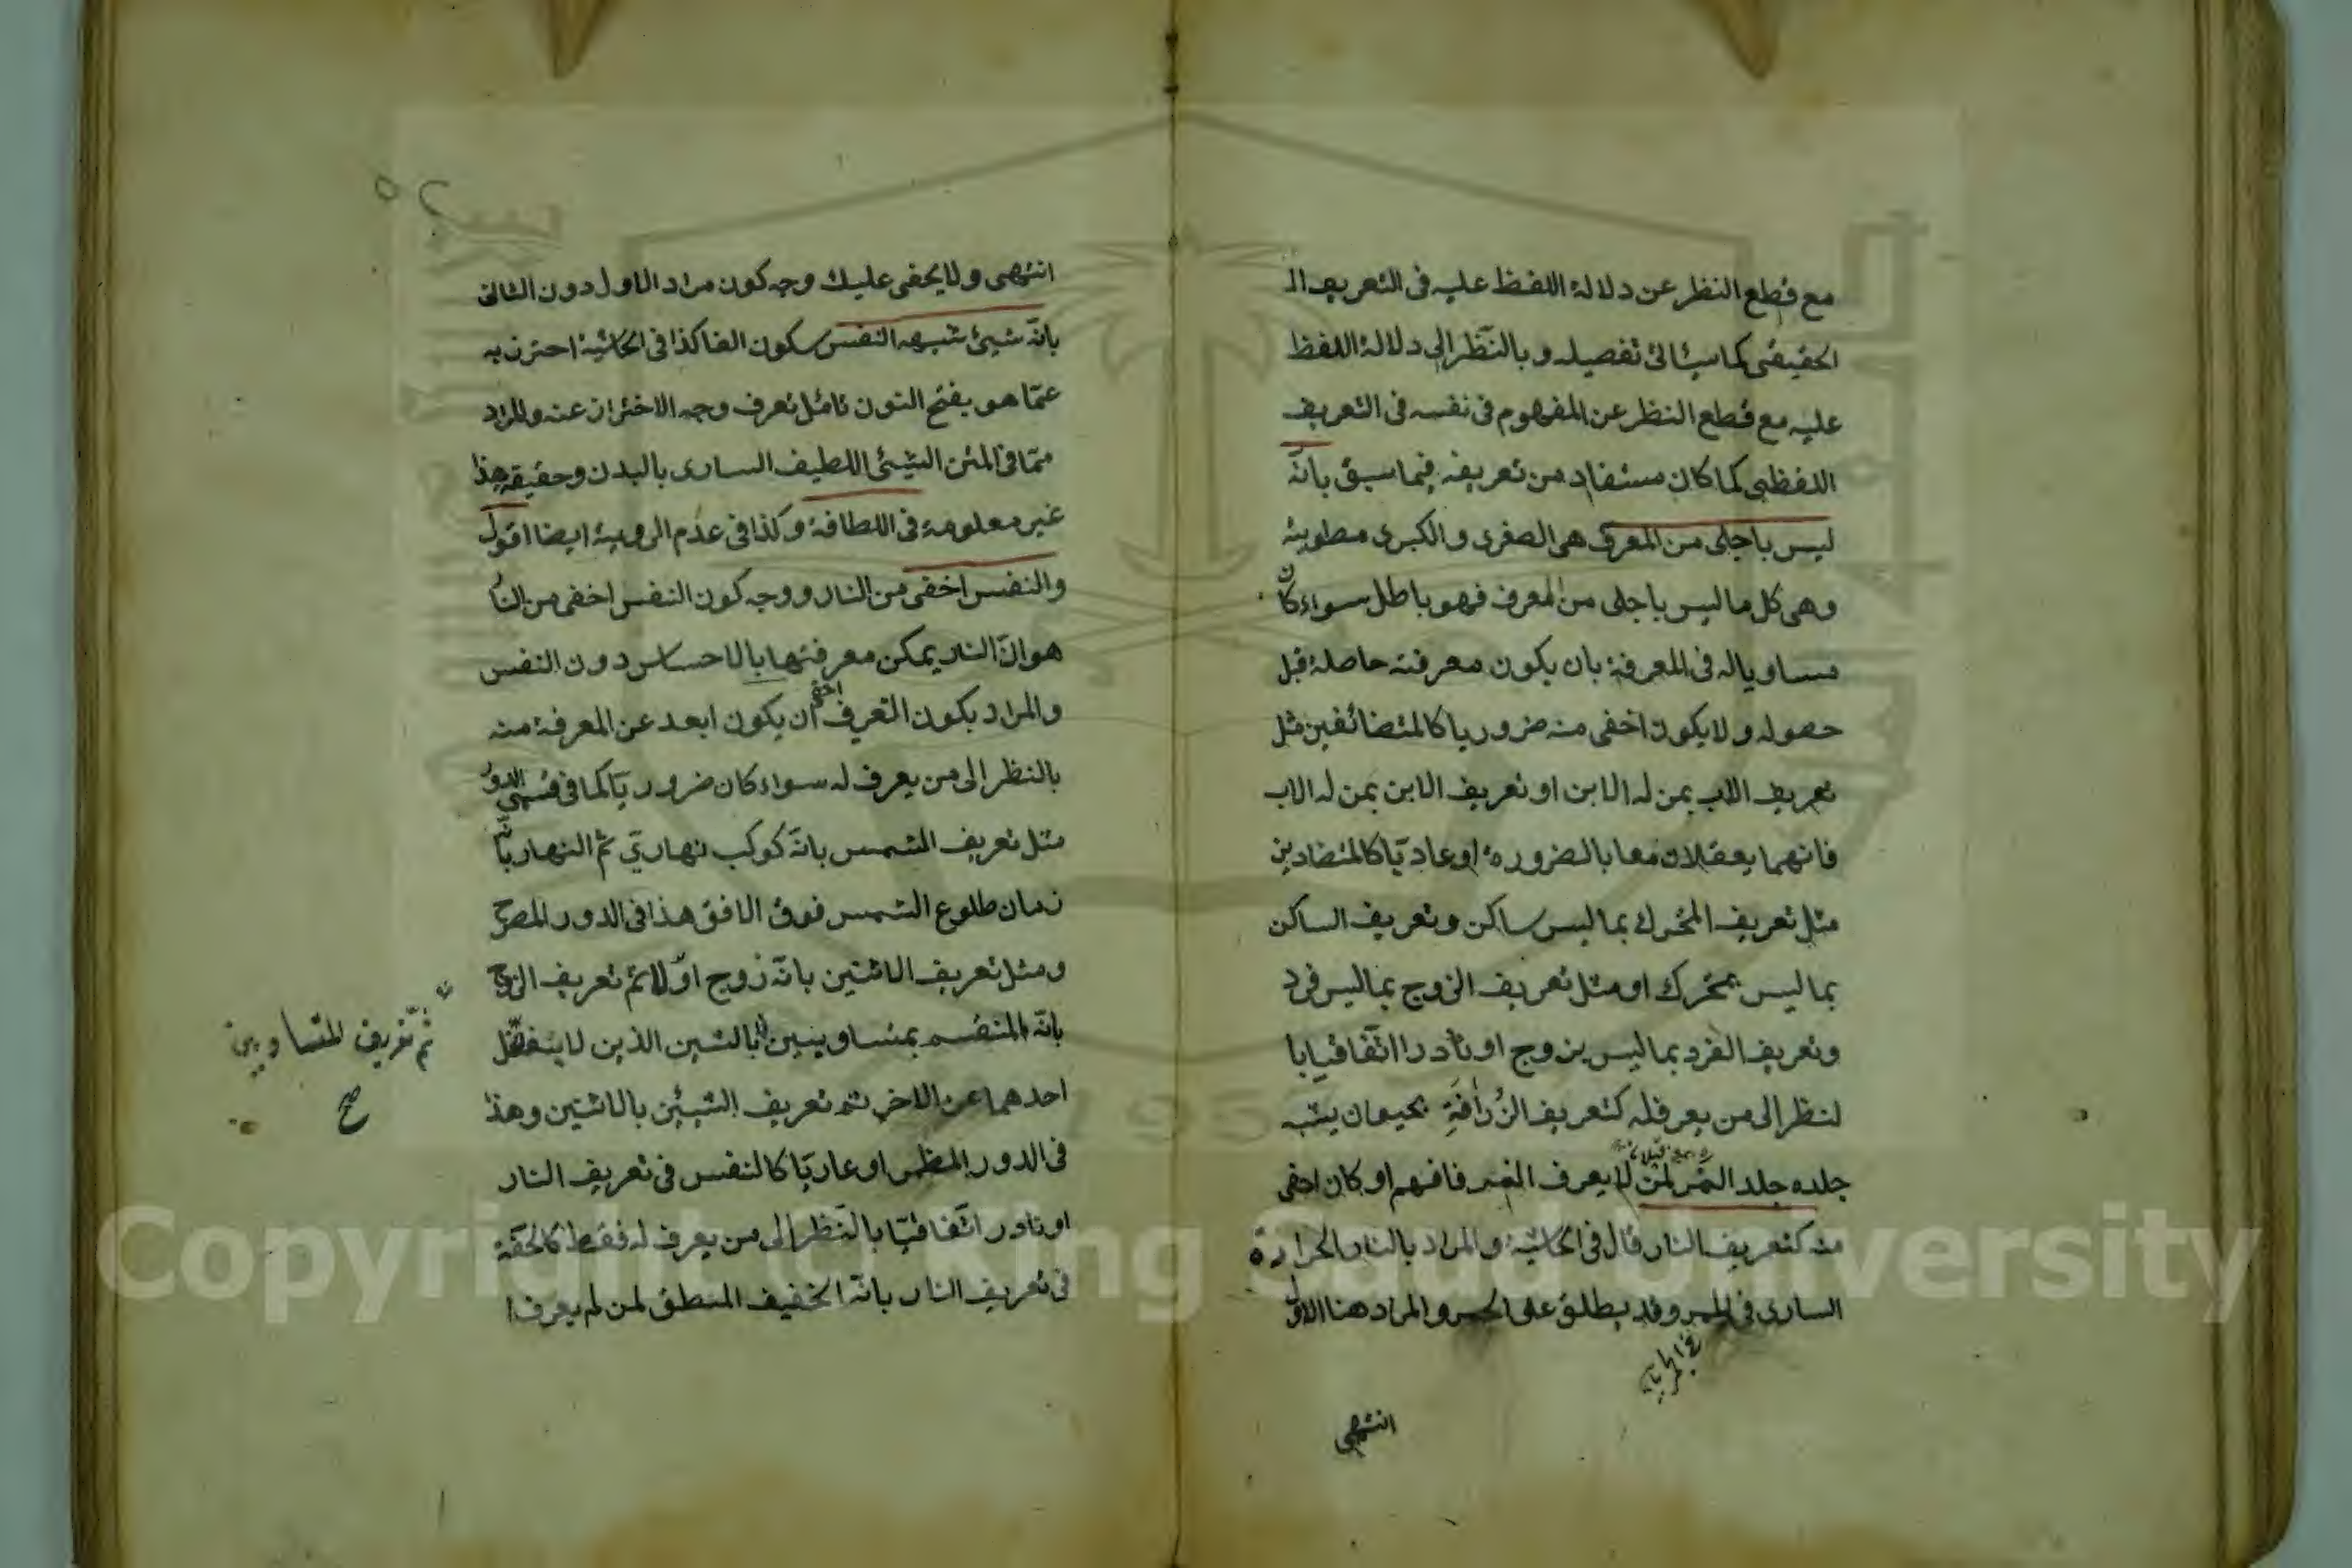 مع قطع النظر عن دلالة اللفظ عليه في التعريف ال
الحقيقي كما سيأتي تفصيله وبالنظر إلى دلالة اللفظ
عليه مع قطع النظر عن المفهوم في نفسه في التعريف
اللفظي كما كان مستفاد من تعريفه فيما سبق بانّه
ليس باجلى من المعرف هي الصغرى والكبرى مطوية
وهي كل ما ليس باجلى من المعرف فهو باطل سواء كان
مساويا له في المعرفة بان يكون معرفته حاصلة قبل
حصوله ولا يكون اخفى منه ضروريا كالمتضائفين مثل
تعريف الاب بمن له الابن او تعريف الابن بمن له الاب
فانهما يعقلان معا بالضرورة او عاديّا كالمتضادين
مثل تعريف المتحرك بما ليس ساكن وتعريف الساكن
بما ليس بمتحرك او مثل تعريف الزوج بما ليس فرد
وتعريف الفرد بما ليس بزوج او نادرا اتّفاقيا با
لنظر الى من يعرفله كتعريف الزُرافَةِ بحيوان يشبه
جلده جلد النمر لمن لا يعرف النمر فافهم او كان اخفى
منه كتعريف النار قال في الحاشية والمراد بالنار الحرارة
الساري في الجمر وقد يطلق على الجمر والمراد هنا الاول
انتهى
انتهى ولا يخفى عليك وجه كون مراد الاول دون الثاني
بانّه شيئ شبهه النفس سكون الفا كذا في الحاشية احترز به
عمّا هو بفتح النون تأمل تعرف وجه الاختراز عنه والمراد
ممّا في المتن الشيئ اللطيف الساري بالبدن وحقيقة هذا
غير معلومة في اللطافة وكذا في عدم الروية ايضا اقول
والنفس اخفى من النار ووجه كون النفس اخفى من النا
هو انّ النار يمكن معرفتها بالاحساس دون النفس
والمراد بكون التعريف اخفى ان يكون ابعد عن المعرفة منه
بالنظر الى من يعرف له سواء كان ضروريّا كما في قسمي الدور
مثل تعريف الشمس بانّه كوكب نهاريّ ثم النهار بانّه
زمان طلوع الشمس فوق الافق هذا في الدور المصرح
ومثل تعريف الاثنين بانّه زوج اوّلا ثم تعريف الزوج
بانّه المنقسم بمتساويين بالشين الذين لا يتفضّل
احدهما عن الاخر ثم تعريف الشيئين بالاثنين وهذا
في الدور المظمر او عاديّا كالنفس في تعريف النار
او نادرا اتّفاقيّا بالنّظر الى من يعرف له فقط كالحقة
في تعريف النار بانّه الخفيف المطلق لمن لم يعرف ا
ثم تعريف المتساويين
صح